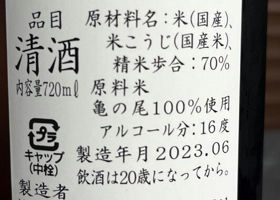 品目
清酒
内容量720ml
原材料名:米(国産)、
米こうじ(国産米)、
精米歩合:70%
原料米
亀の尾100%使用
アルコール分:16度
プラ
キャップ
(中栓)
製造年月2023.06
飲酒は20歳になってから。
製造者